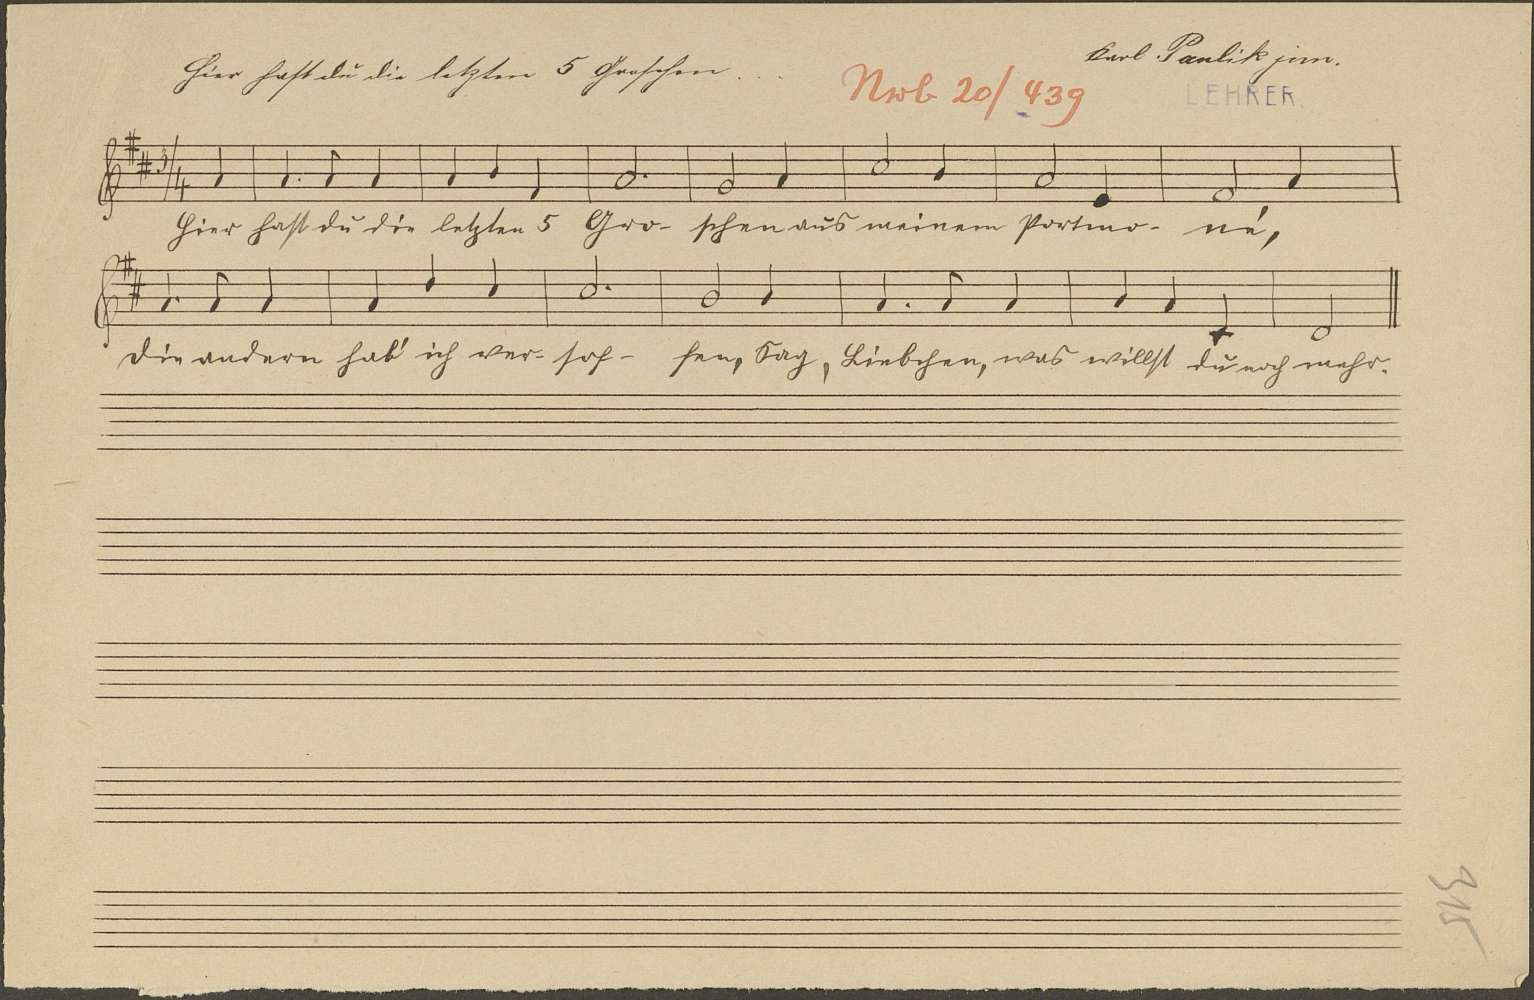 Karl Paulik jun.
Hier hast du die letzten 5 Groschen...
Nrob 20/439
LEHRER.
3/4
Hier hast du die letzten 5 Gro- schen aus meinem Portmo- né,
die andern hab' ich ver- sof- fen, Sag, Liebchen, was willst du noch mehr.
315